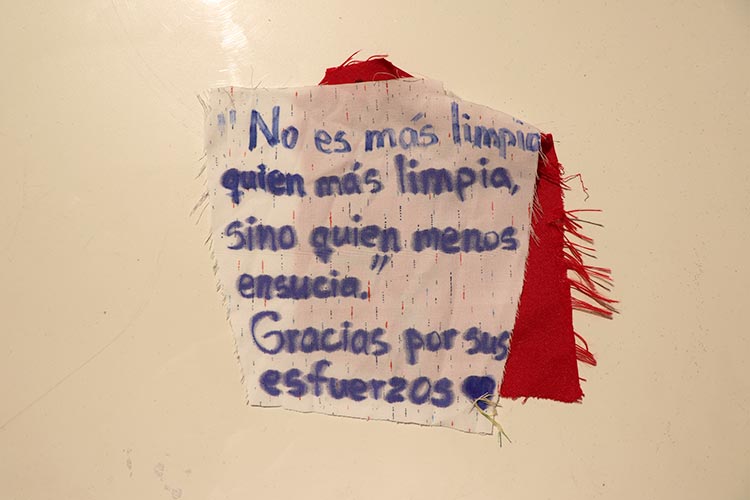 "No es más limpia
quien más limpia,
sino quien menos
ensucia."
Gracias por sus
esfuerzos